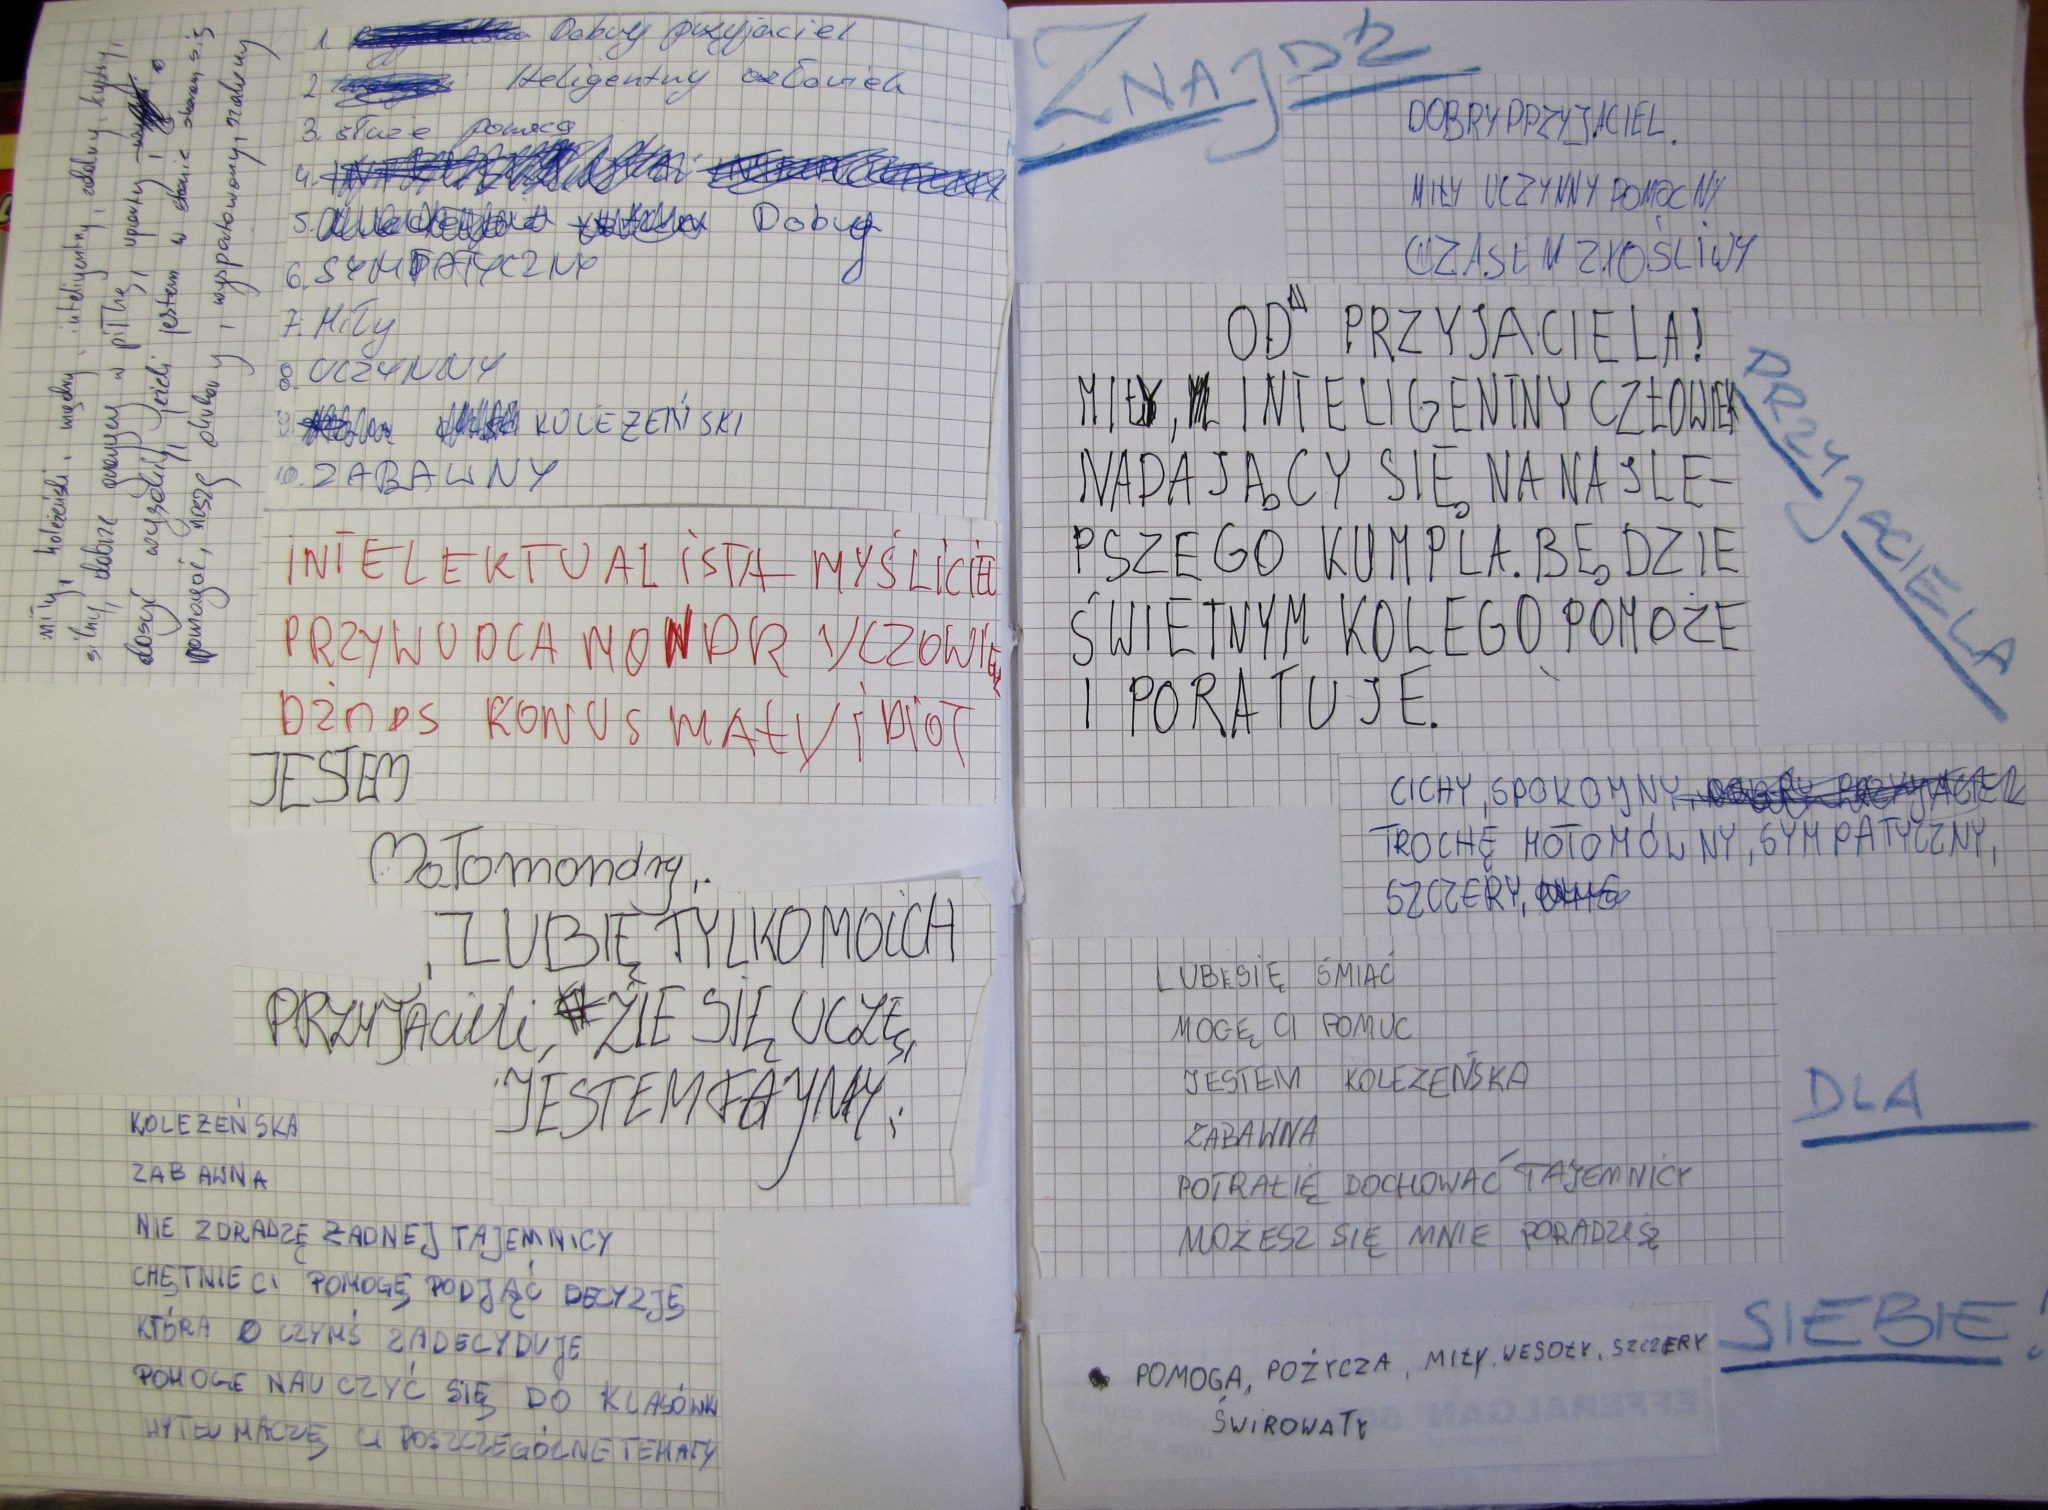 miły, koleżeński, mądry, inteligentny, zdolny,
silny, dobrze
dosyć
pomagać, noszę okulary, wysportowany,
1. Dobry przyjaciel
2. Iteligentny człowiek
3. służę pomocą
4.
5. Dobry
6. SYMPATYCZNY
7. Miły
8. UCZYNNY
9. KOLEZEŃSKI
10. ZABAWNY
INTELEKTUALISTA MYŚLICIEL
PRZYWUDCA MONDR
KONUS MAŁY IDIOT
JESTEM
Małomondry,
LUBIĘ TYLKO MOICH
PRZYJAcieli, ŹLE SIĘ UCZĘ,
JESTEM FAJNY,
KOLEZEŃSKA
ZABAWNA
NIE ZDRADZĘ ŻADNEJ TAJEMNICY
CHĘTNIE CI POMOGĘ PODJĄĆ DECYZJĘ
KTÓRA O CZYMŚ ZADECYDUJE
POMOGE NAUCZYĆ SIĘ DO KLASÓWKI
CI POSZCZEGÓLNE TEMATY
ZNAJDŹ
DOBRY PRZYJACIEL.
MIŁY UCZYNNY POMOCNY
CZASEM ZŁOŚLIWY
OD PRZYJACIELA!
MIŁY, INTELIGENTNY CZŁOWIEK
NADAJĄCY SIĘ NA NAJLE-
PSZEGO KUMPLA. BĘDZIE
ŚWIETNYM KOLEGO POMOŻE
I PORATUJE.
PRZYJACIELA
CICHY, SPOKOJNY, DOBRY PRZYJACIEL
TROCHĘ MOŁOMÓWNY, SYMPATYCZNY,
SZCZERY,
LUBĘ SIĘ ŚMIAĆ
MOGĘ CI POMUC
JESTEM KOLEZEŃSKA
ZABAWNA
POTRAFIĘ DOCHOWAĆ TAJEMNICY
MOŻESZ SIĘ MNIE PORADZIŚ
DLA
POMOGA, POŻYCZA, MIŁY, WESOŁY, SZCZERY
ŚWIROWATY
SIEBIE!